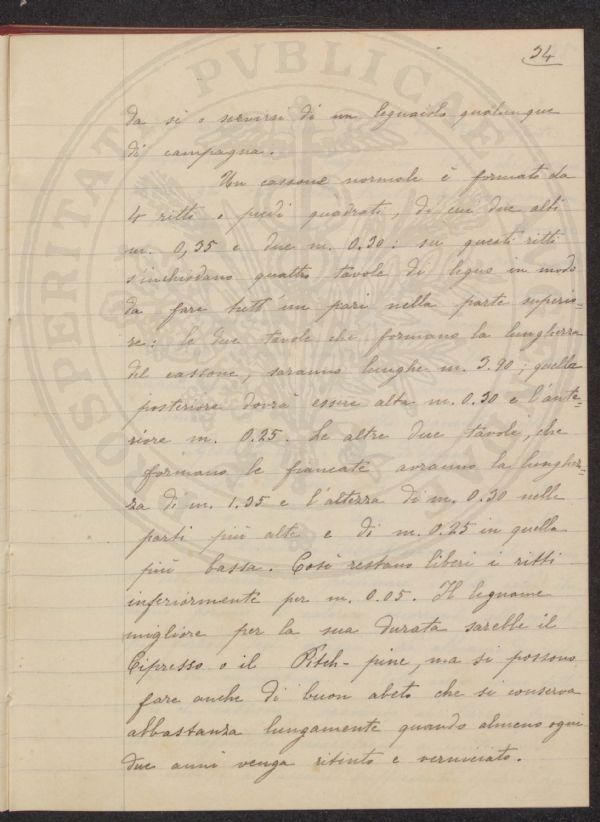 34
da sè o servirsi di un legnaiolo qualunque
di campagna.
Un cassone normale è formato da
4 ritti o piedi quadrati, di cui due alti
m. 0,35 e due m. 0.30: su questi ritti
s'inchiodano quattro tavole di legno in modo
da fare tutt'un pari nella parte superio-
re: le due tavole che formano la lunghezza
del cassone, saranno lunghe m. 3.90; quella
posteriore dovrà essere alta m. 0.30 e l'ante-
riore m. 0.25. Le altre due tavole, che
formano le fiancate avranno la lunghez-
za di m. 1.35 e l'altezza di m. 0.30 nelle
parti più alte e di m. 0.25 in quella
più bassa. Così restano liberi i ritti
inferiormente per m. 0.05. Il legname
migliore per la sua durata sarebbe il
Cipresso o il Pitch-pine, ma si possono
fare anche di buon abete che si conserva
abbastanza lungamente quando almeno ogni
due anni venga ritinto e verniciato.
PVBLICAE
PROSPERITATI